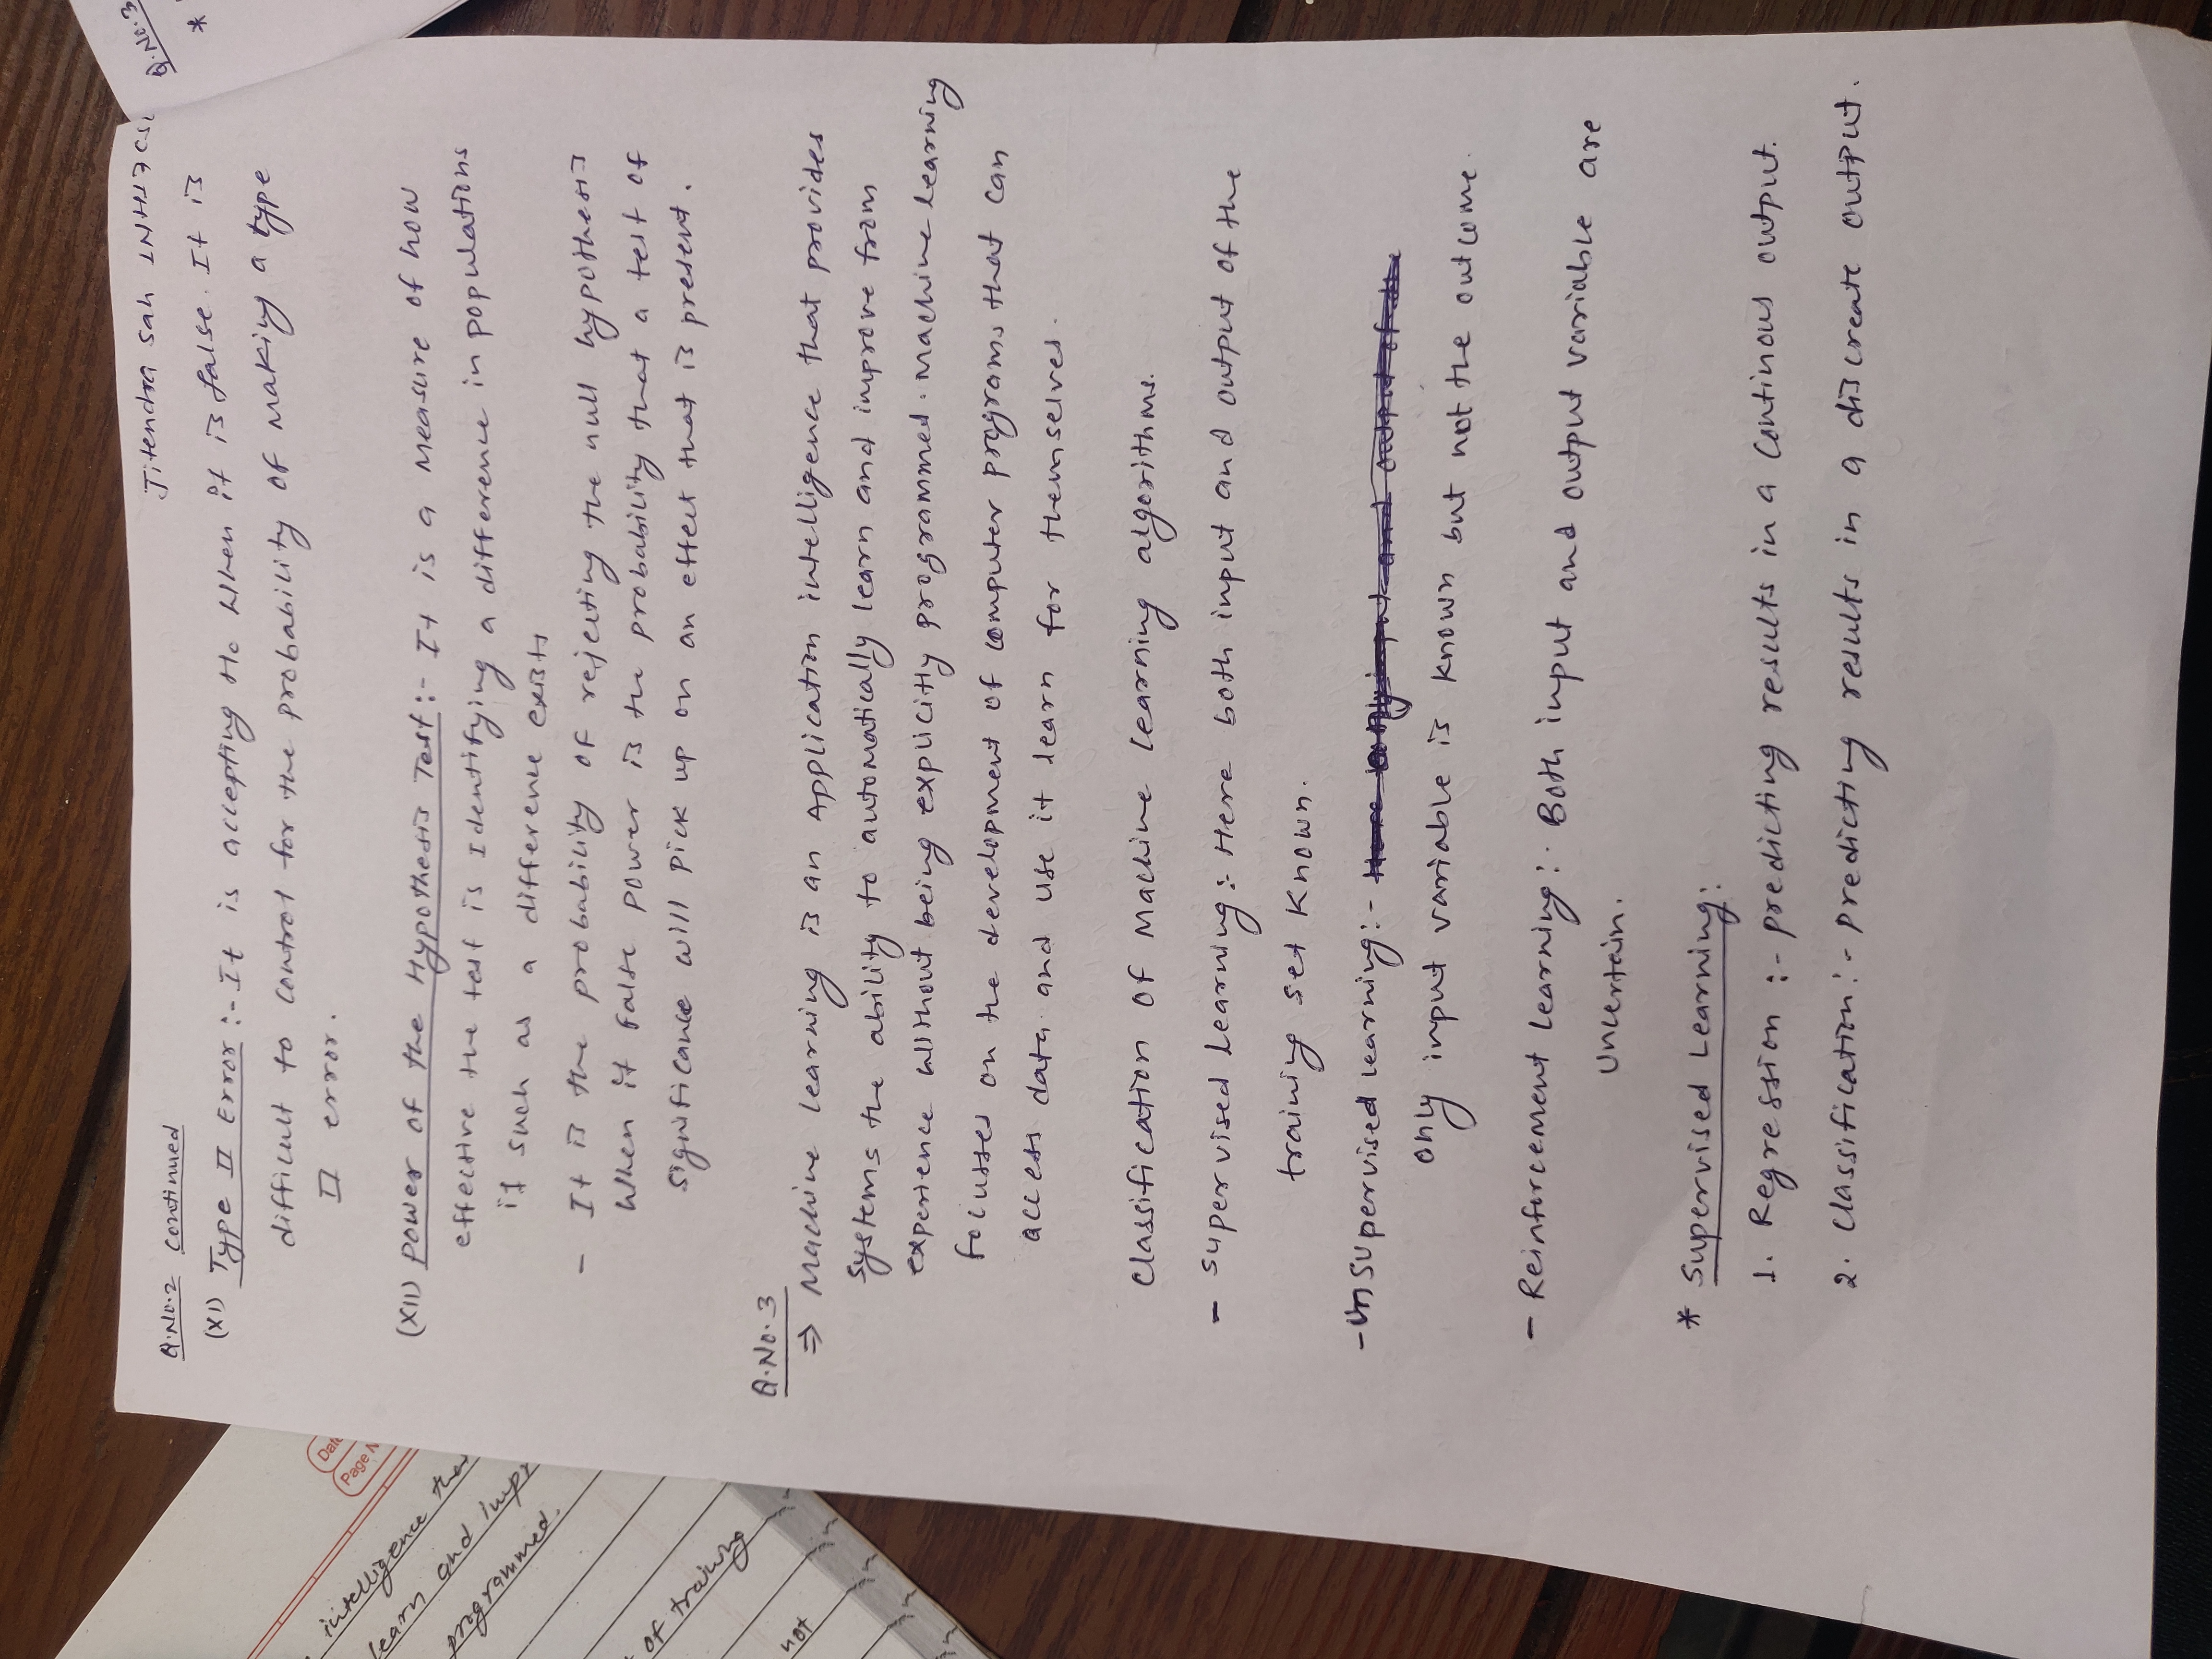 Jitendra Sah 1NH17CS
Q.No.2 Continued
(XI) Type II Error :- It is accepting Ho When it is false. It is
difficult to control for the probability of Making a type
II error.
(XII) Power of the Hypothesis Test :- It is a Measure of how
effective the test is Identifying a difference in populations
if such as a difference exists
- It is the probability of rejecting the null hypothesis
When it false power is the probability that a test of
significance will pick up on an effect that is present.
Q.No.3
⇒ Machine learning is an Application intelligence that provides
systems the ability to automatically learn and improve from
experience without being explicitly programmed. Machine learning
focusses on the development of computer programs that can
access data and use it learn for themselves.
Classification of Machine learning algorithms.
- Supervised Learning: Here both input and output of the
training set known.
- Un Supervised learning:-
only input variable is known but not the outcome.
- Reinforcement learning:- Both input and output variable are
Uncertain.
* Supervised Learning:
1. Regression :- predicting results in a Continous output.
2. Classification:- Predicting results in a discreate output.
intelligence that
learn and impr
programmed.
of training
not
Date
Page N
Q.No.3
*